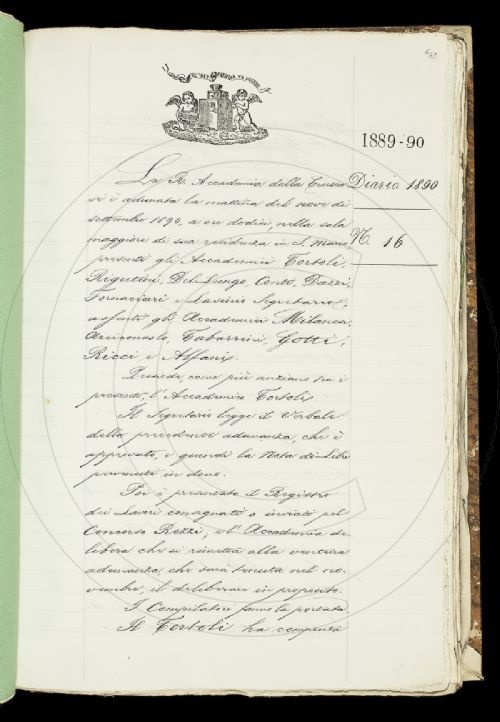 1889-90
Diario 1890
N. 16
La R. Accademia della Crusca
si è adunata la mattina del nove di
settembre 1890, a ore dodici, nella sala
maggiore di sua residenza in S. Marco
presenti gli Accademici Tortoli,
Rigutini, Del Lungo, Conti, Dazzi,
Fornaciari e Lavinio Segretario;
assenti gli Accademici Milanesi,
Arciconsolo, Tabarrini, Gotti,
Ricci e Alfani.
Presiede, come più anziano tra i
presenti, l'Accademico Tortoli.
Il Segretario legge il Verbale
della precedente adunanza, che è
approvato, e quindi la Nota di Libri
pervenuti in dono.
Poi è presentato il Registro
dei Lavori consegnati o inviati pel
Concorso Rezzi, e l'Accademia de
libera che si rimetta alla ventura
adunanza, che sarà tenuta nel no-
vembre, il deliberare in proposito.
I Compilatori fanno la portata.
Il Tortoli ha compiuta